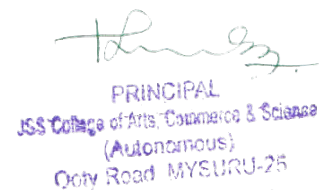 PRINCIPAL
JSS College of Arts, Commerce & Science
(Autonomous)
Ooty Road MYSURU-25